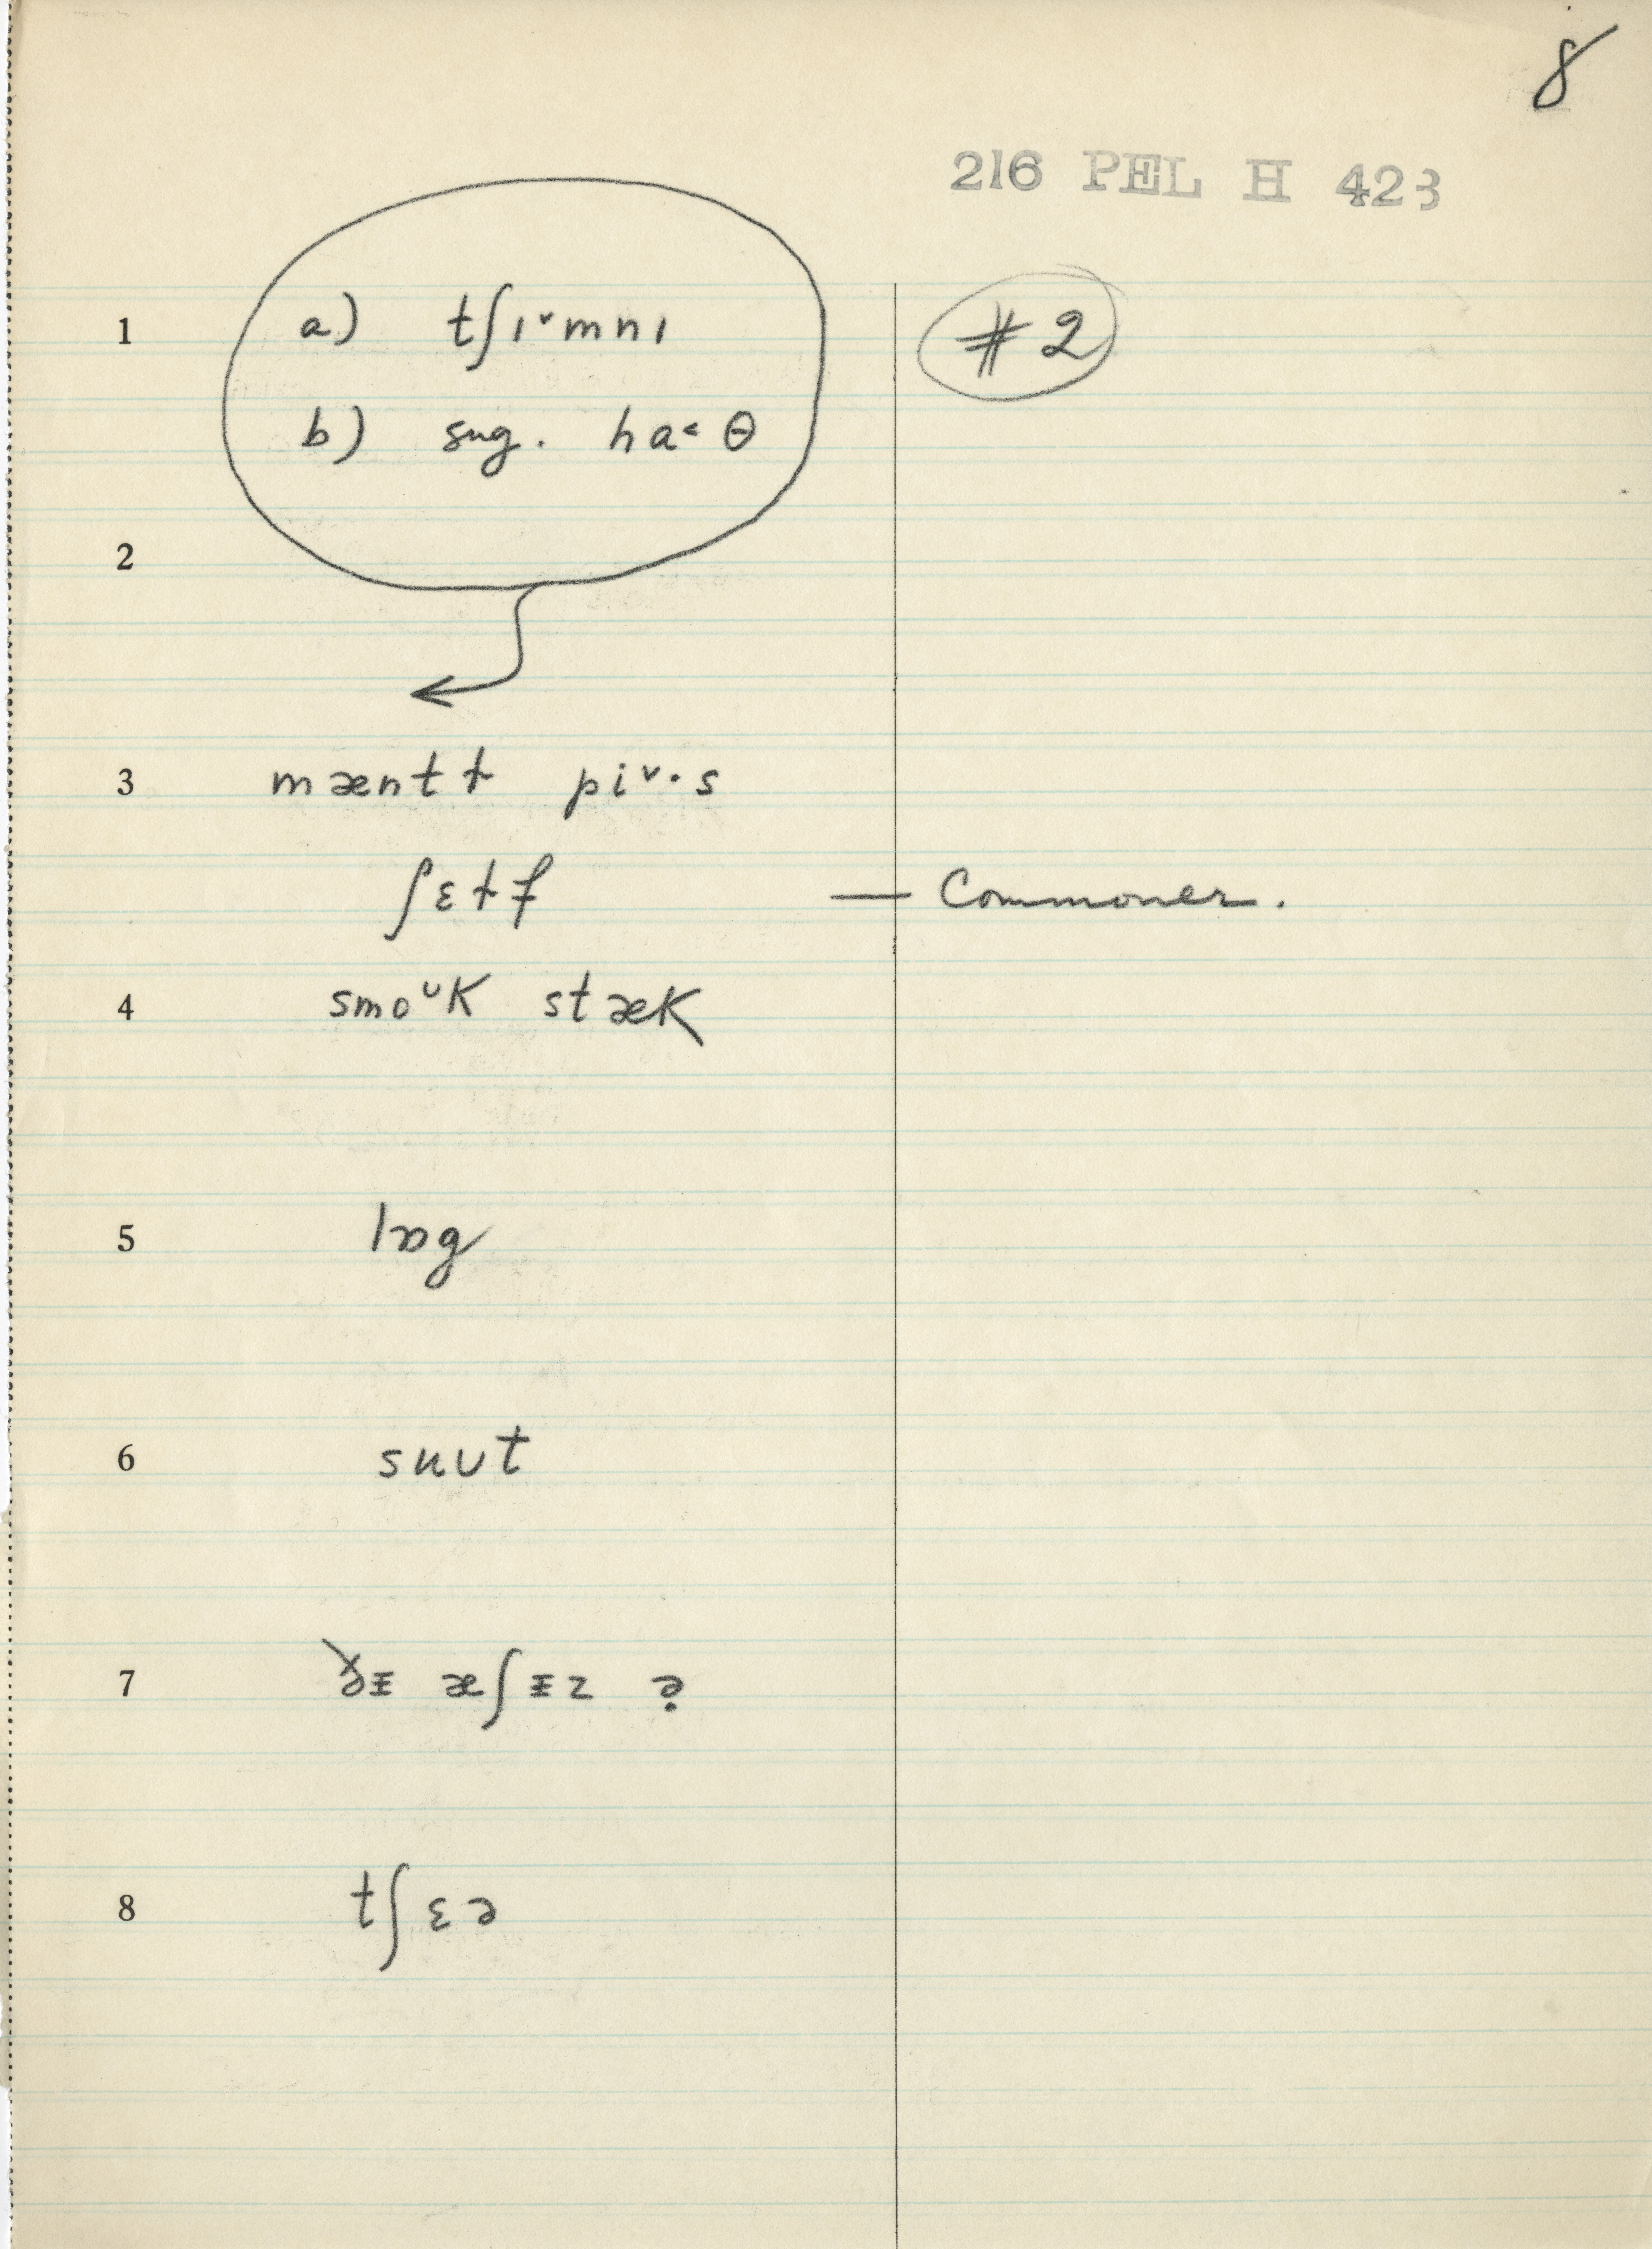 8
216 PEL H 423
1 a) tʃɪˇmnɪ #2
b) sug. ha˂ θ
2
3 mæntɫ piˇ·s
ʃɛɫf — Commoner.
4 smoᴜK stæK
5 lɒg
6 sʉut
7 ðɪ æʃɪz ə̣
8 tʃɛə